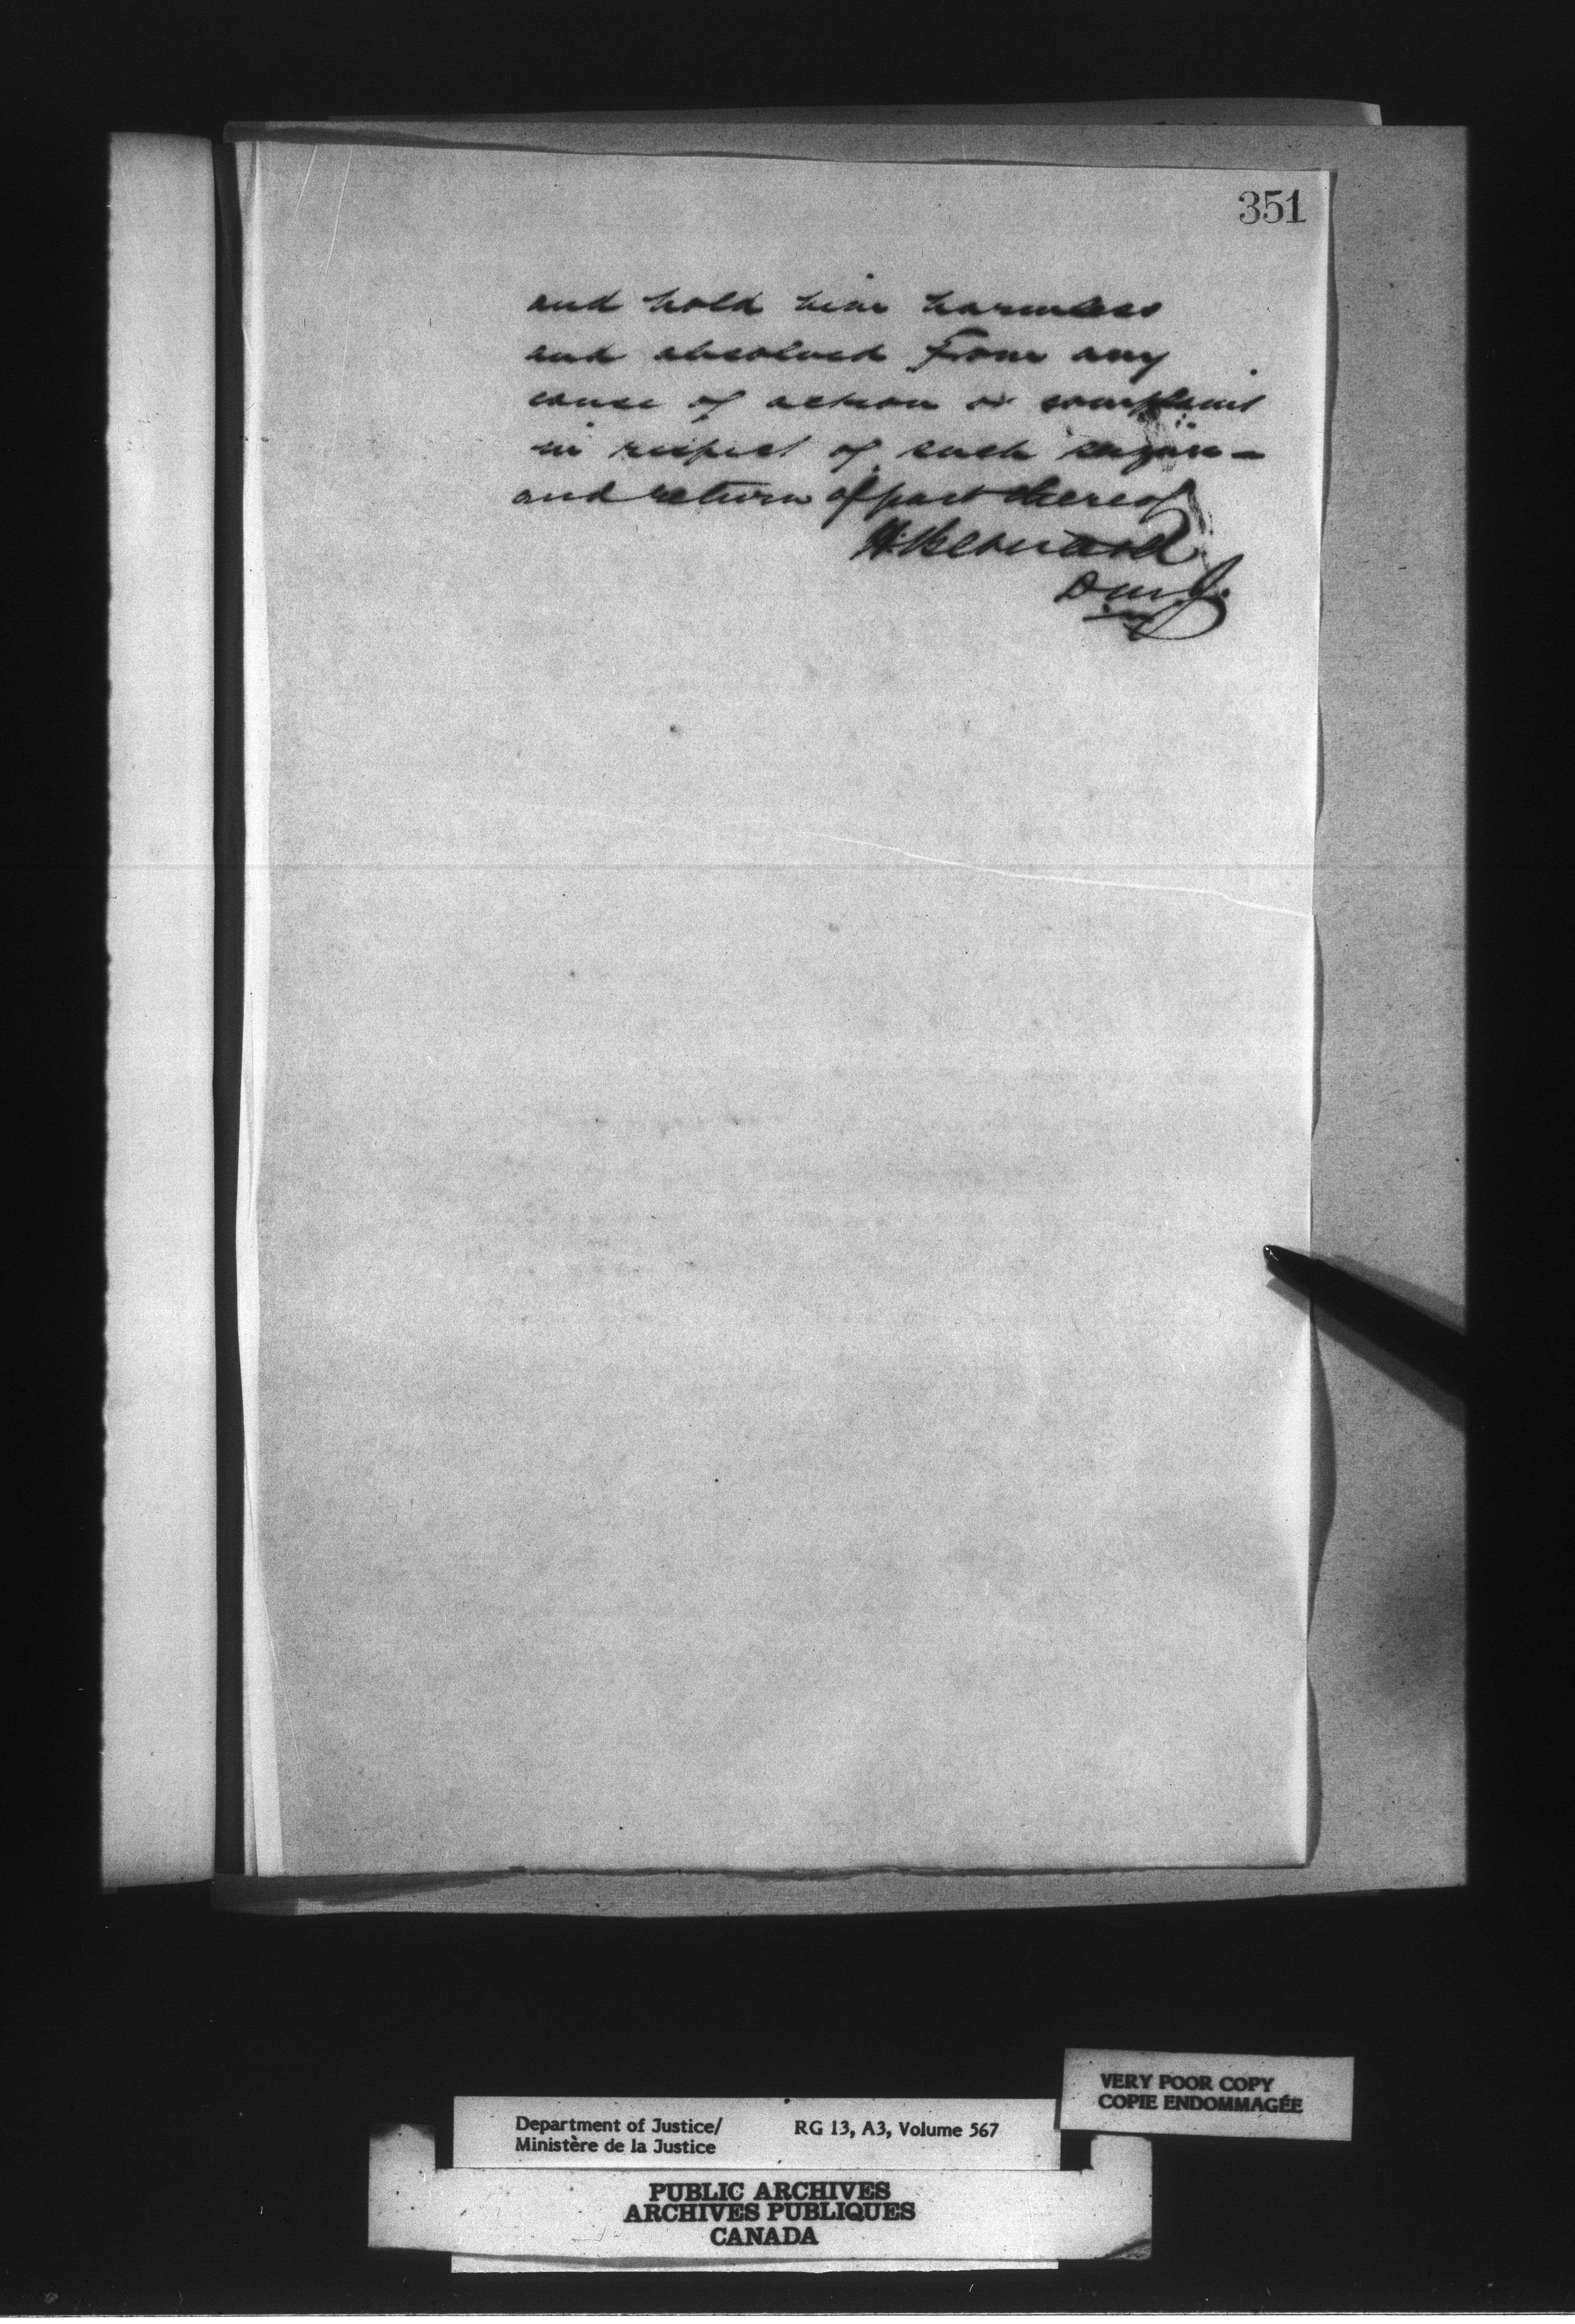 351
and hold him harmless
and absolved from any
cause of action or complaint
in respect of such seizure –
and return of part thereof
H Bernard
D.M.J.
VERY POOR COPY
COPIE ENDOMMAGÉE
Department of Justice/
Ministère de la Justice
RG 13, A3, Volume 567
PUBLIC ARCHIVES
ARCHIVES PUBLIQUES
CANADA